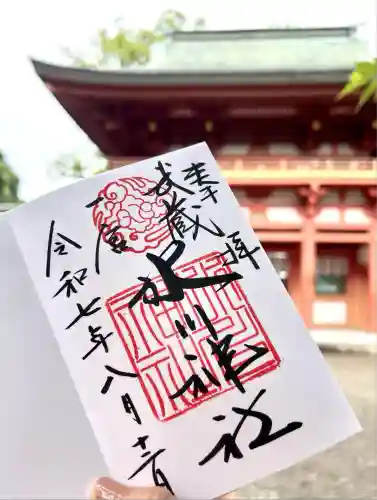 奉拝
武蔵
一宮
氷川神社
令和七年八月十二日